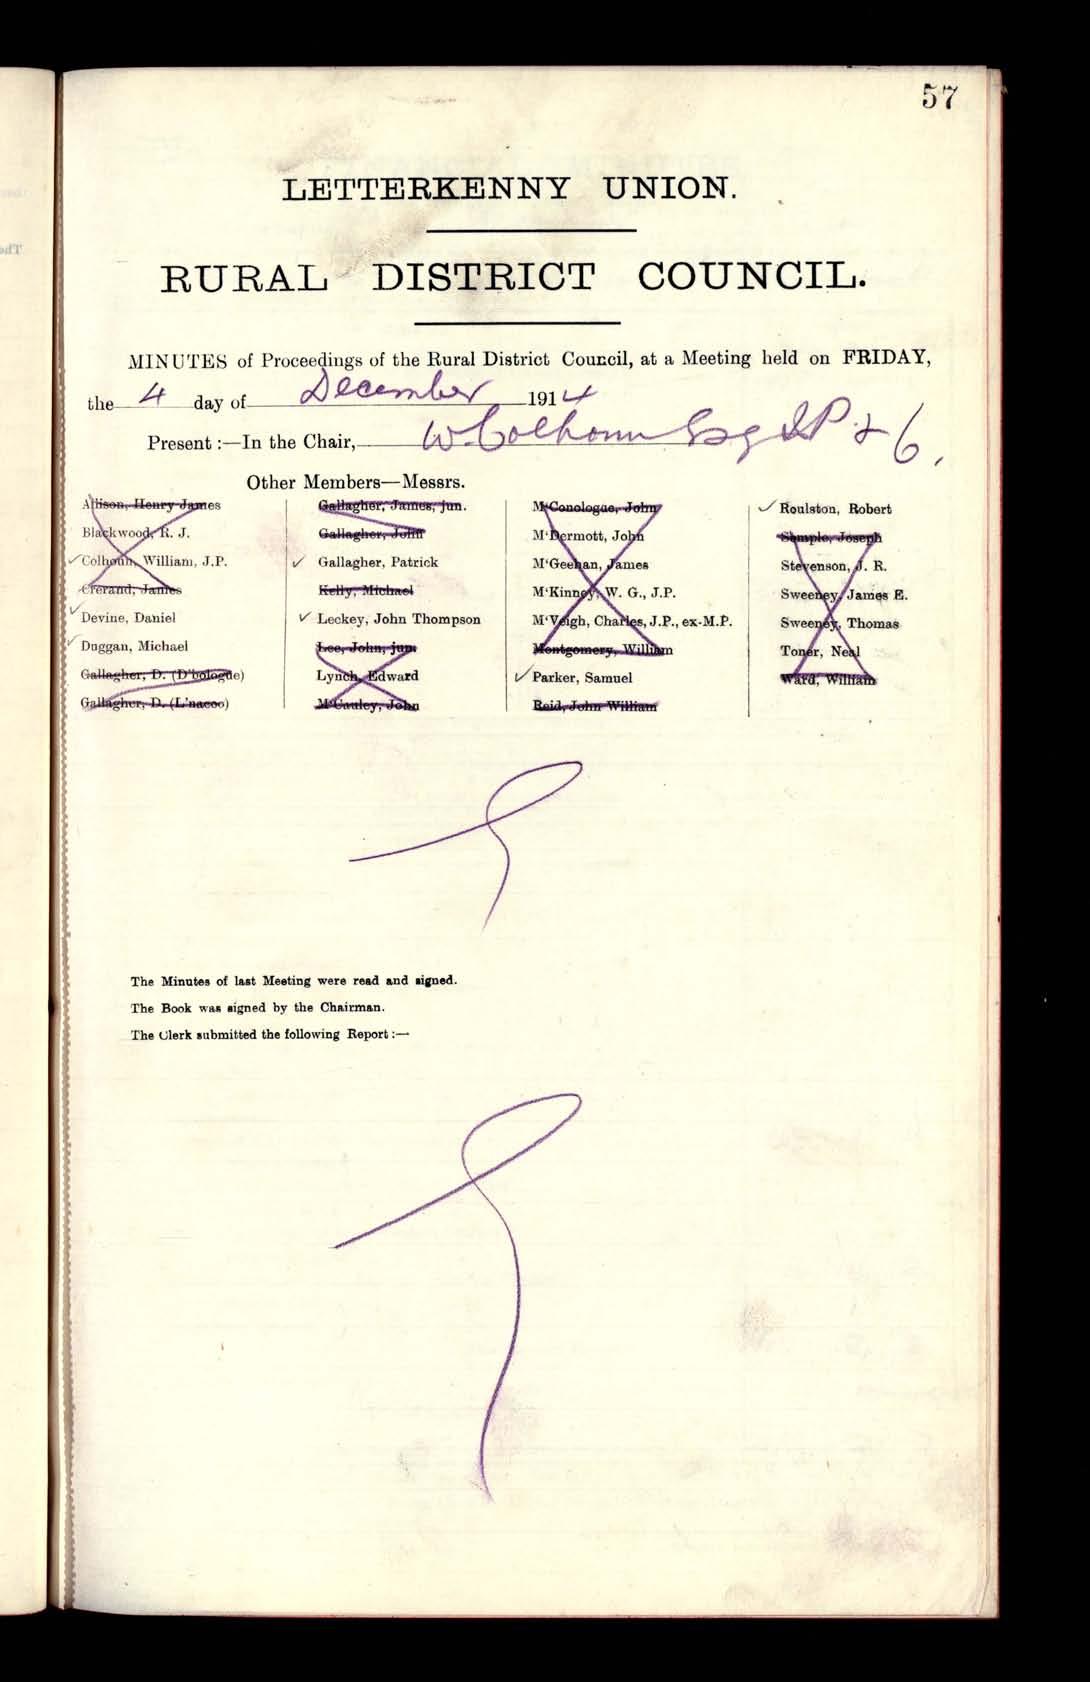 57
LETTERKENNY UNION.
RURAL DISTRICT COUNCIL.
MINUTES of Proceedings of the Rural District Council, at a Meeting held on FRIDAY,
the 4 day of December 1914
Present :—In the Chair, W. Colhoun Esq J.P. &c.
Other Members—Messrs.
Allison, Henry James
Blackwood, R. J.
✓ Colhoun, William, J.P.
Crerand, James
✓ Devine, Daniel
✓ Duggan, Michael
Gallagher, D. (D'bologue)
Gallagher, D. (L'nacoo)
Gallagher, James, jun.
Gallagher, John
✓ Gallagher, Patrick
Kelly, Michael
✓ Leckey, John Thompson
Lee, John, jun.
Lynch, Edward
M'Cauley, John
M'Conologue, John
M'Dermott, John
M'Geehan, James
M'Kinney, W. G., J.P.
M'Veigh, Charles, J.P., ex-M.P.
Montgomery, William
✓ Parker, Samuel
Reid, John William
✓ Roulston, Robert
Semple, Joseph
Stevenson, J. R.
Sweeney, James E.
Sweeney, Thomas
Toner, Neal
Ward, William
The Minutes of last Meeting were read and signed.
The Book was signed by the Chairman.
The Clerk submitted the following Report :—